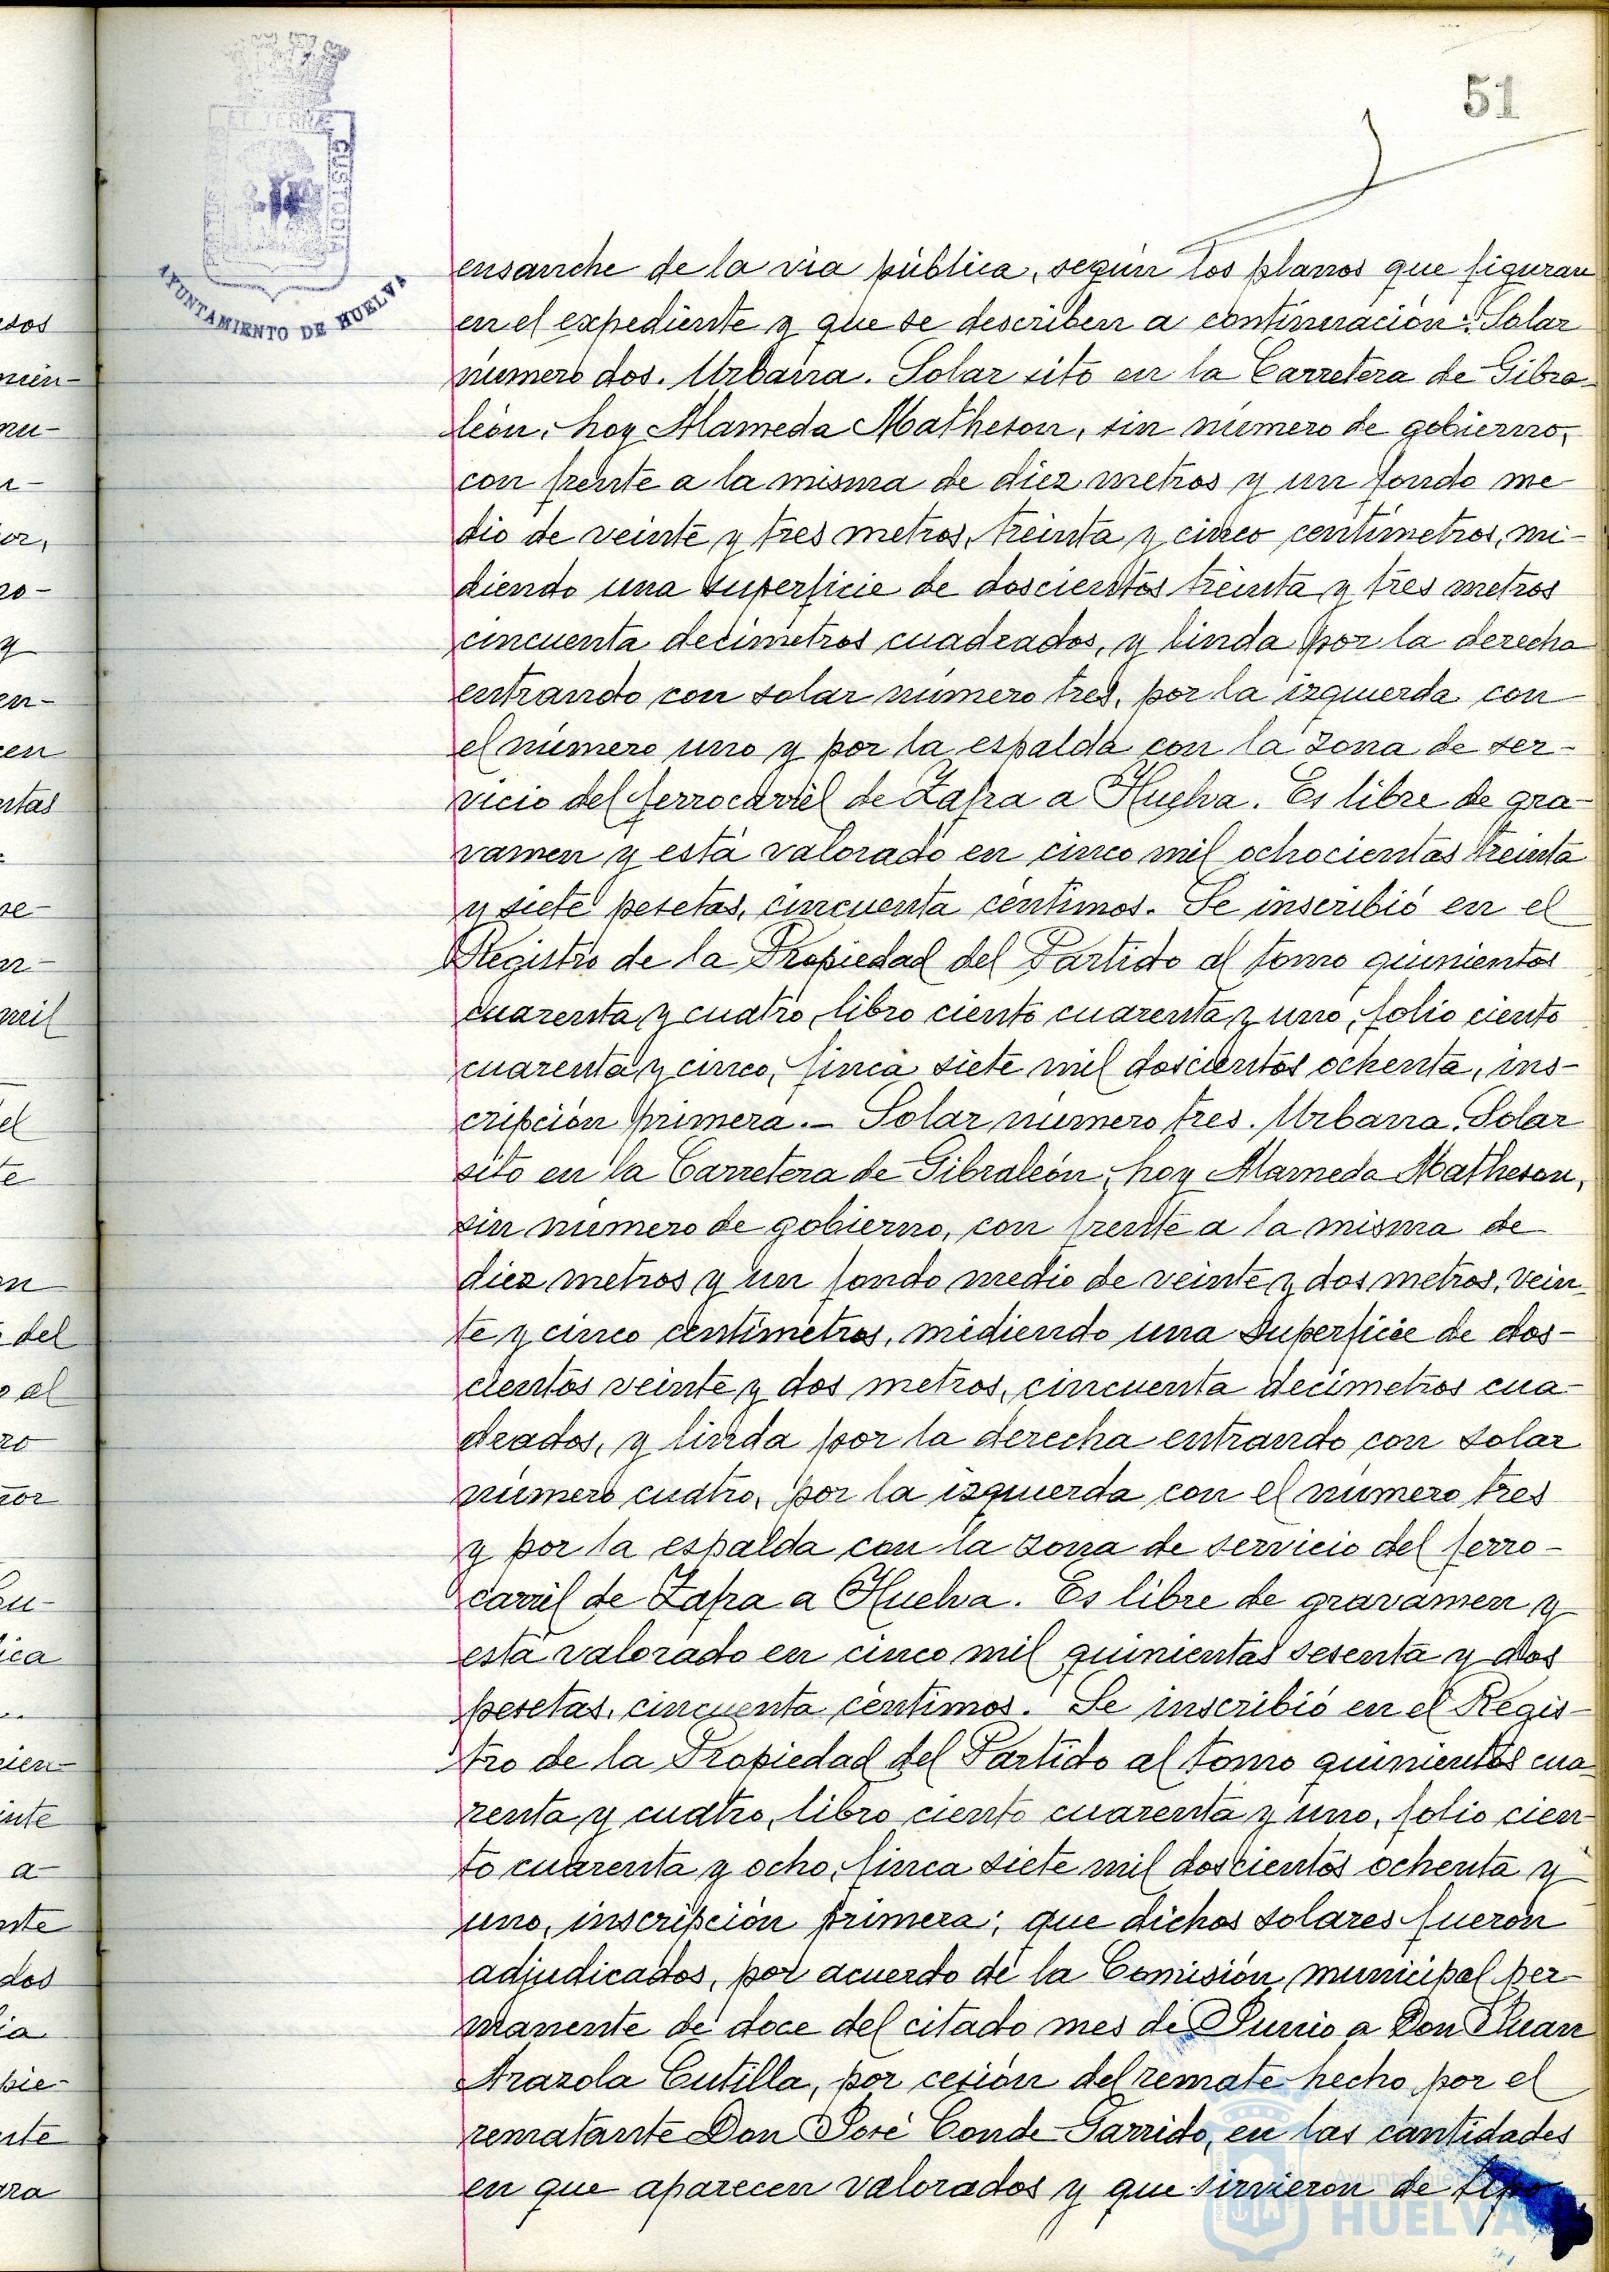 51
ET TERRE
CUSTODIA
AYUNTAMIENTO DE HUELVA
ensanche de la via pública, según los planos que figuran
en el expediente y que se describen a continuación: Solar
número dos. Urbana. Solar sito en la Carretera de Gibra-
león, hoy Alameda Matheson, sin número de gobierno,
con frente a la misma de diez metros y un fondo me-
dio de veinte y tres metros, treinta y cinco centímetros, mi-
diendo una superficie de doscientos treinta y tres metros
cincuenta decímetros cuadrados, y linda por la derecha
entrando con solar número tres, por la izquierda con
el número uno y por la espalda con la zona de ser-
vicio del ferrocarril de Zafra a Huelva. Es libre de gra-
vamen y está valorado en cinco mil ochocientas treinta
y siete pesetas, cincuenta céntimos. Se inscribió en el
Registro de la Propiedad del Partido al tomo quinientos
cuarenta y cuatro, libro ciento cuarenta y uno, folio ciento
cuarenta y cinco, finca siete mil doscientos ochenta, ins-
cripción primera.- Solar número tres. Urbana. Solar
sito en la Carretera de Gibraleón, hoy Alameda Matheson,
sin número de gobierno, con frente a la misma de
diez metros y un fondo medio de veinte y dos metros, vein-
te y cinco centímetros, midiendo una superficie de dos-
cientos veinte y dos metros, cincuenta decímetros cua-
drados, y linda por la derecha entrando con solar
número cuatro, por la izquierda con el número tres
y por la espalda con la zona de servicio del ferro-
carril de Zafra a Huelva. Es libre de gravamen y
está valorado en cinco mil quinientas sesenta y dos
pesetas, cincuenta céntimos. Se inscribió en el Regis-
tro de la Propiedad del Partido al tomo quinientos cua-
renta y cuatro, libro ciento cuarenta y uno, folio cien-
to cuarenta y ocho, finca siete mil doscientos ochenta y
uno, inscripción primera; que dichos solares fueron
adjudicados, por acuerdo de la Comisión municipal per-
manente de doce del citado mes de Junio a Don Juan
Arazola Cutilla, por cesión del remate hecho por el
rematante Don José Conde Garrido, en las cantidades
en que aparecen valorados y que sirvieron de tipo
Ayuntamiento
HUELVA